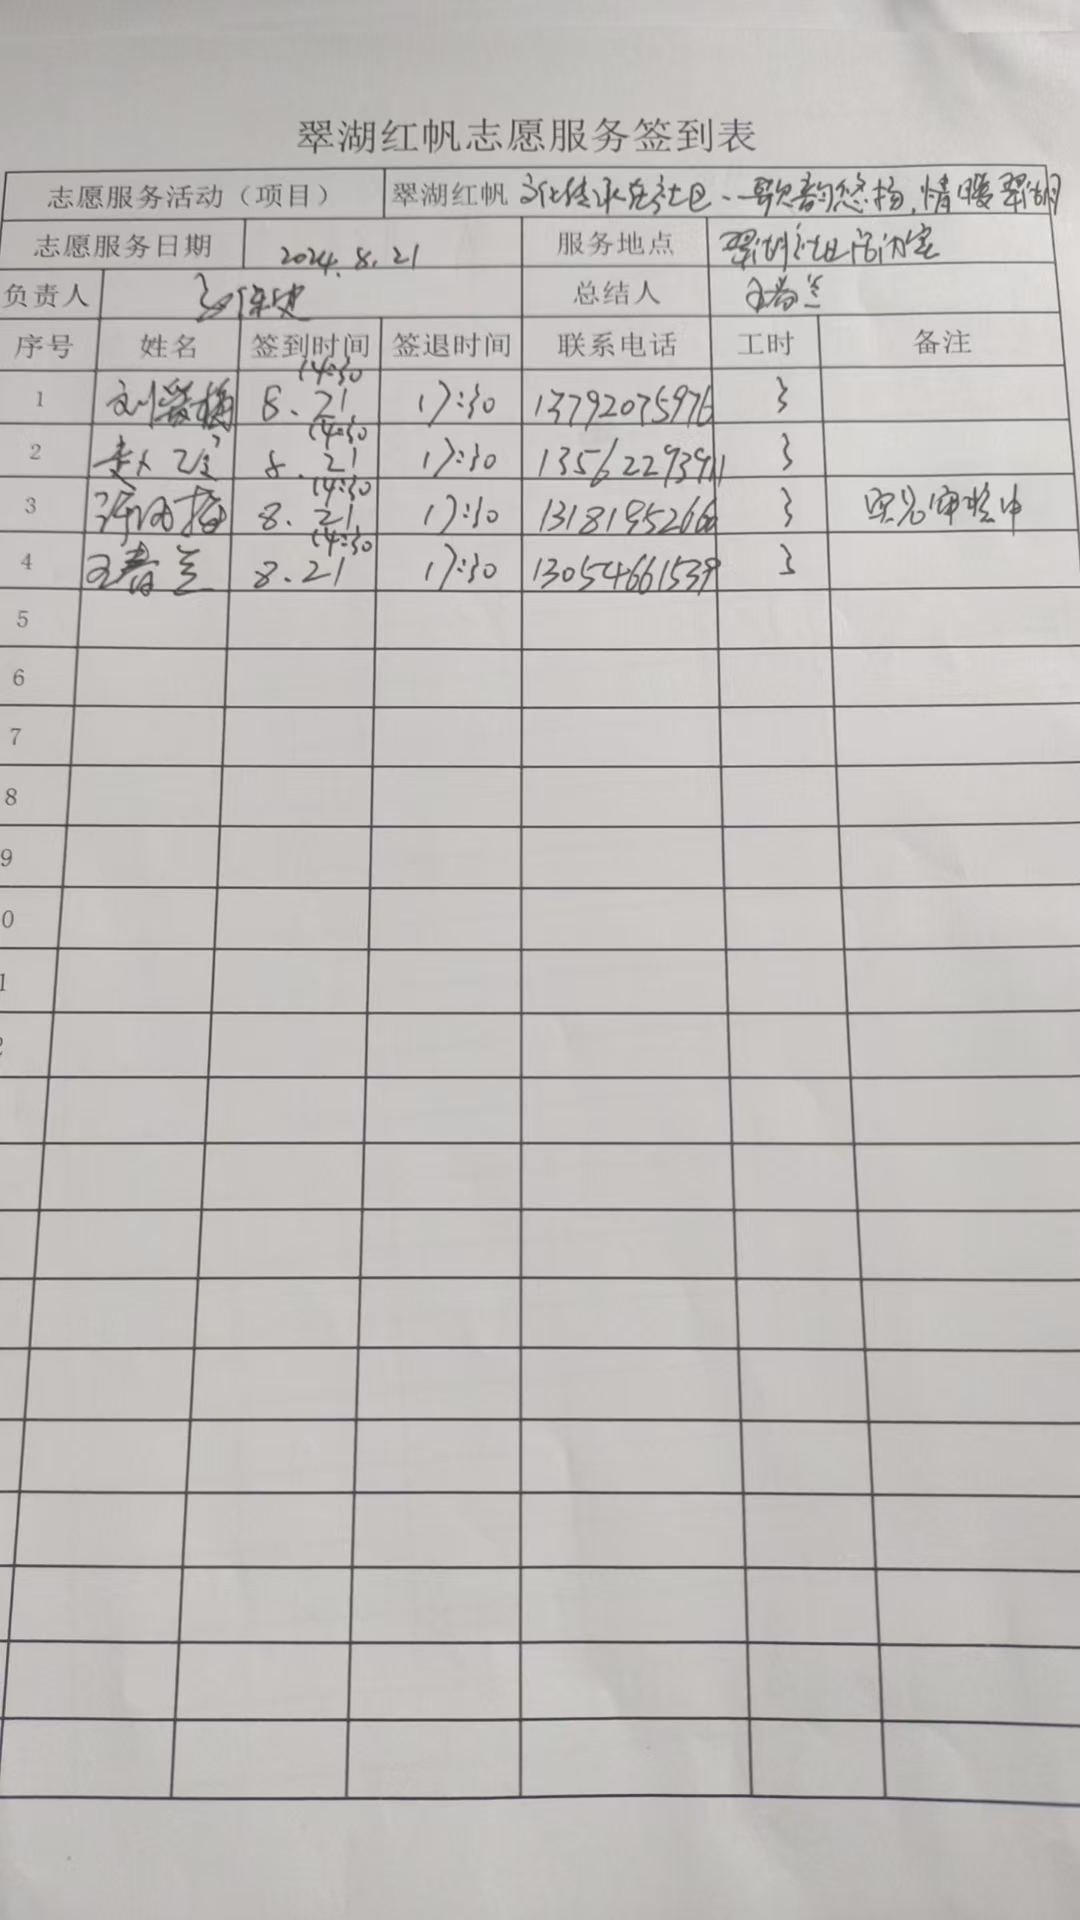 翠湖红帆志愿服务签到表
志愿服务活动（项目） 翠湖红帆 文化传承在社区、歌韵悠扬，情暖翠湖
志愿服务日期 2024.8.21 服务地点 翠湖社区活动室
负责人 总结人 王春兰
序号 姓名 签到时间 签退时间 联系电话 工时 备注
1 刘爱梅 8.21 14:30 17:30 13792075976 3
2 赵 8.21 14:30 17:30 13562293911 3
3 许 8.21 14:30 17:30 1318195266 3
4 王春兰 8.21 14:30 17:30 13054661539 3
5
6
7
8
9
0
1
2